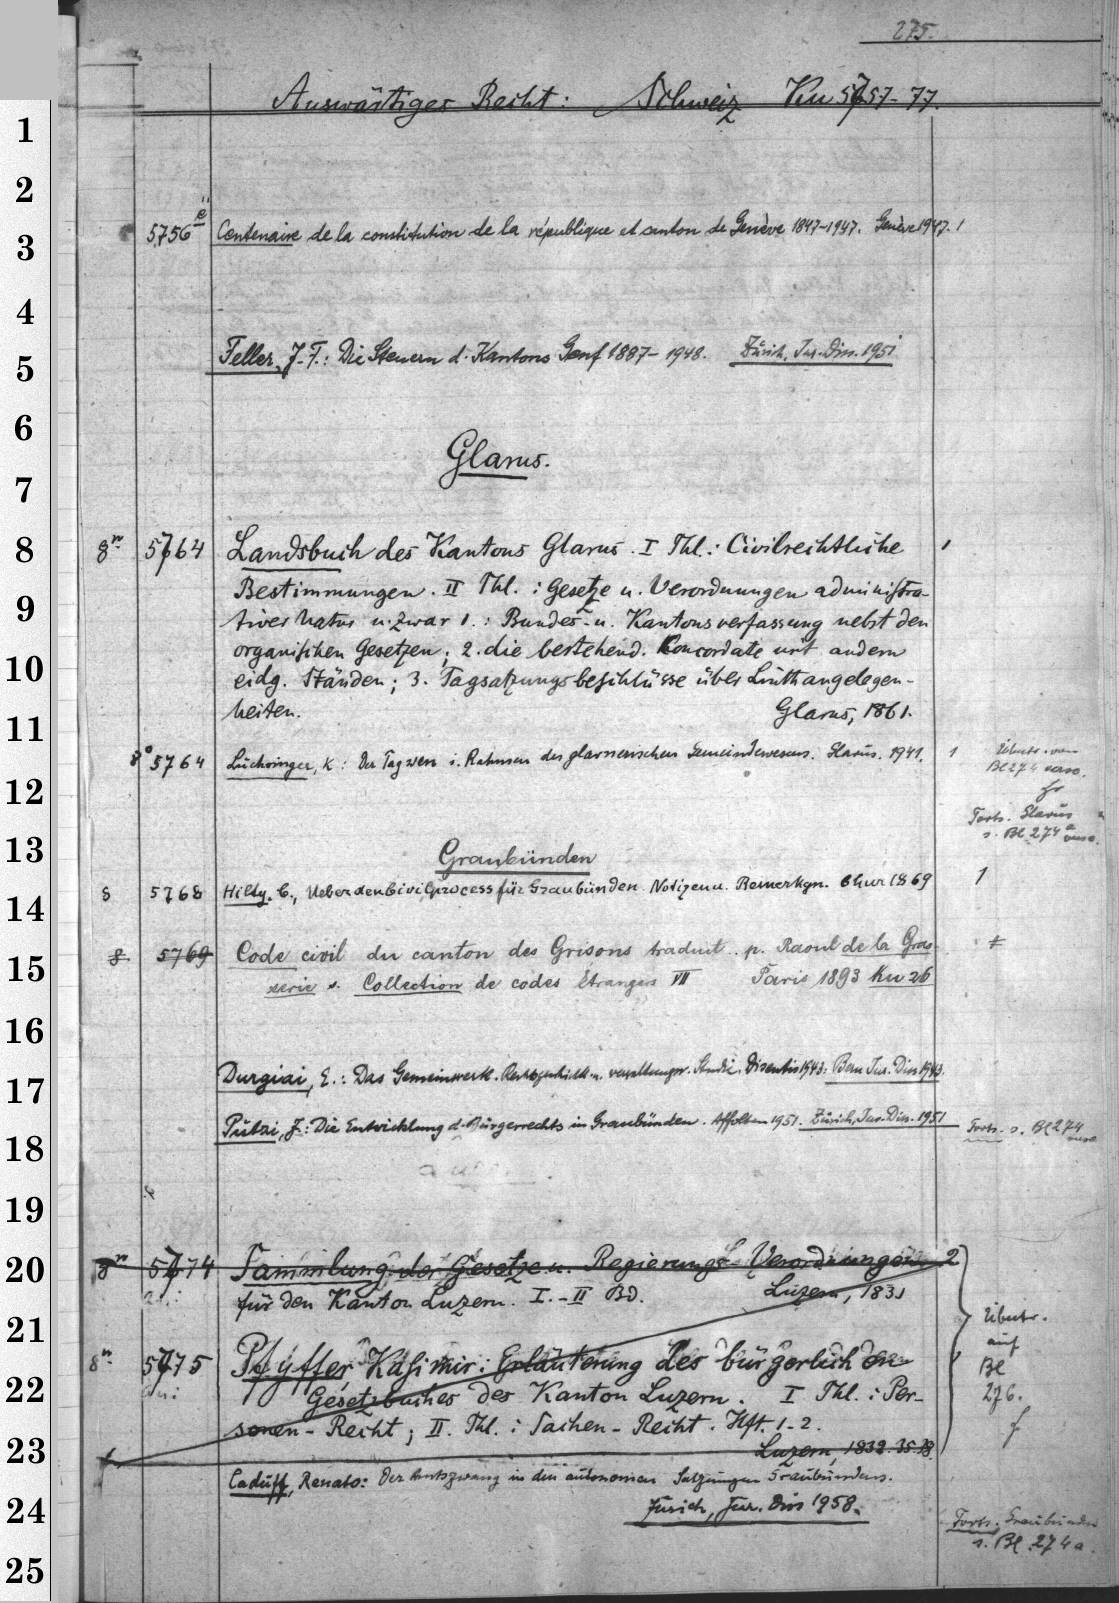 275.
Auswärtiges Recht: Schweiz Ku 5757-77.
5756 e Centenaire de la constitution de la république et canton de Genève 1847-1947. Genève 1947. 1
Feller, J.-F.: Die Steuern d. Kantons Genf 1887-1948. Zürich, Jur. Diss. 1951
Glarus.
8° 5764 Landsbuch des Kantons Glarus. I Thl.: Civilrechtliche 1
Bestimmungen. II Thl.: Gesetze u. Verordnungen administra-
tiver Natur u. zwar 1.: Bundes- u. Kantonsverfassung nebst den
organischen Gesetzen; 2. die bestehend. Concordate mit andern
eidg. Ständen; 3. Tagsatzungsbeschlüsse über Linthangelegen-
heiten. Glarus, 1861.
8° 5764 Luchsinger, K: Der Tagwen i. Rahmen des glarnerischen Gemeindewesens. Glarus. 1941. 1
Übertr. von
Bl 274 verso.
Forts. Glarus
s. Bl. 274 a verso.
Graubünden
8 5768 Hilty. C., Ueber den Civilprocess für Graubünden. Notizen u. Bemerkgn. Chur 1869 1
8 5769 Code civil du canton des Grisons traduit p. Raoul de la Gras-
serie s. Collection de codes étrangers VII Paris 1893 Ku 26
Durgiai, E.: Das Gemeinwerk. Rechtsgeschichtl. u. verwaltungsr. Studie. Disentis 1943: Bern Jur. Diss 1943.
Pützi, J.: Die Entwicklung d. Bürgerrechts in Graubünden. Affoltern 1951. Zürich, Jur. Diss. 1951
Forts. s. Bl 274 verso
5774 Sammlung der Gesetze u. Regierungs-Verordnungen 2
für den Kanton Luzern. I.-II Bd. Luzern, 1831
5775 Pfyffer Kasimir: Erläuterung des bürgerlichen
Gesetzbuches des Kanton Luzern. I Thl.: Per-
sonen-Recht; II. Thl.: Sachen-Recht. Hft. 1-2.
Luzern, 1832. 35.
Übertr.
auf
Bl
276.
Caduff, Renato: Der Amtszwang in den autonomen Satzungen Graubündens.
Zürich, Jur. Diss 1958.
Forts. Graubünden
s. Bl. 274 a.
1
2
3
4
5
6
7
8
9
10
11
12
13
14
15
16
17
18
19
20
21
22
23
24
25